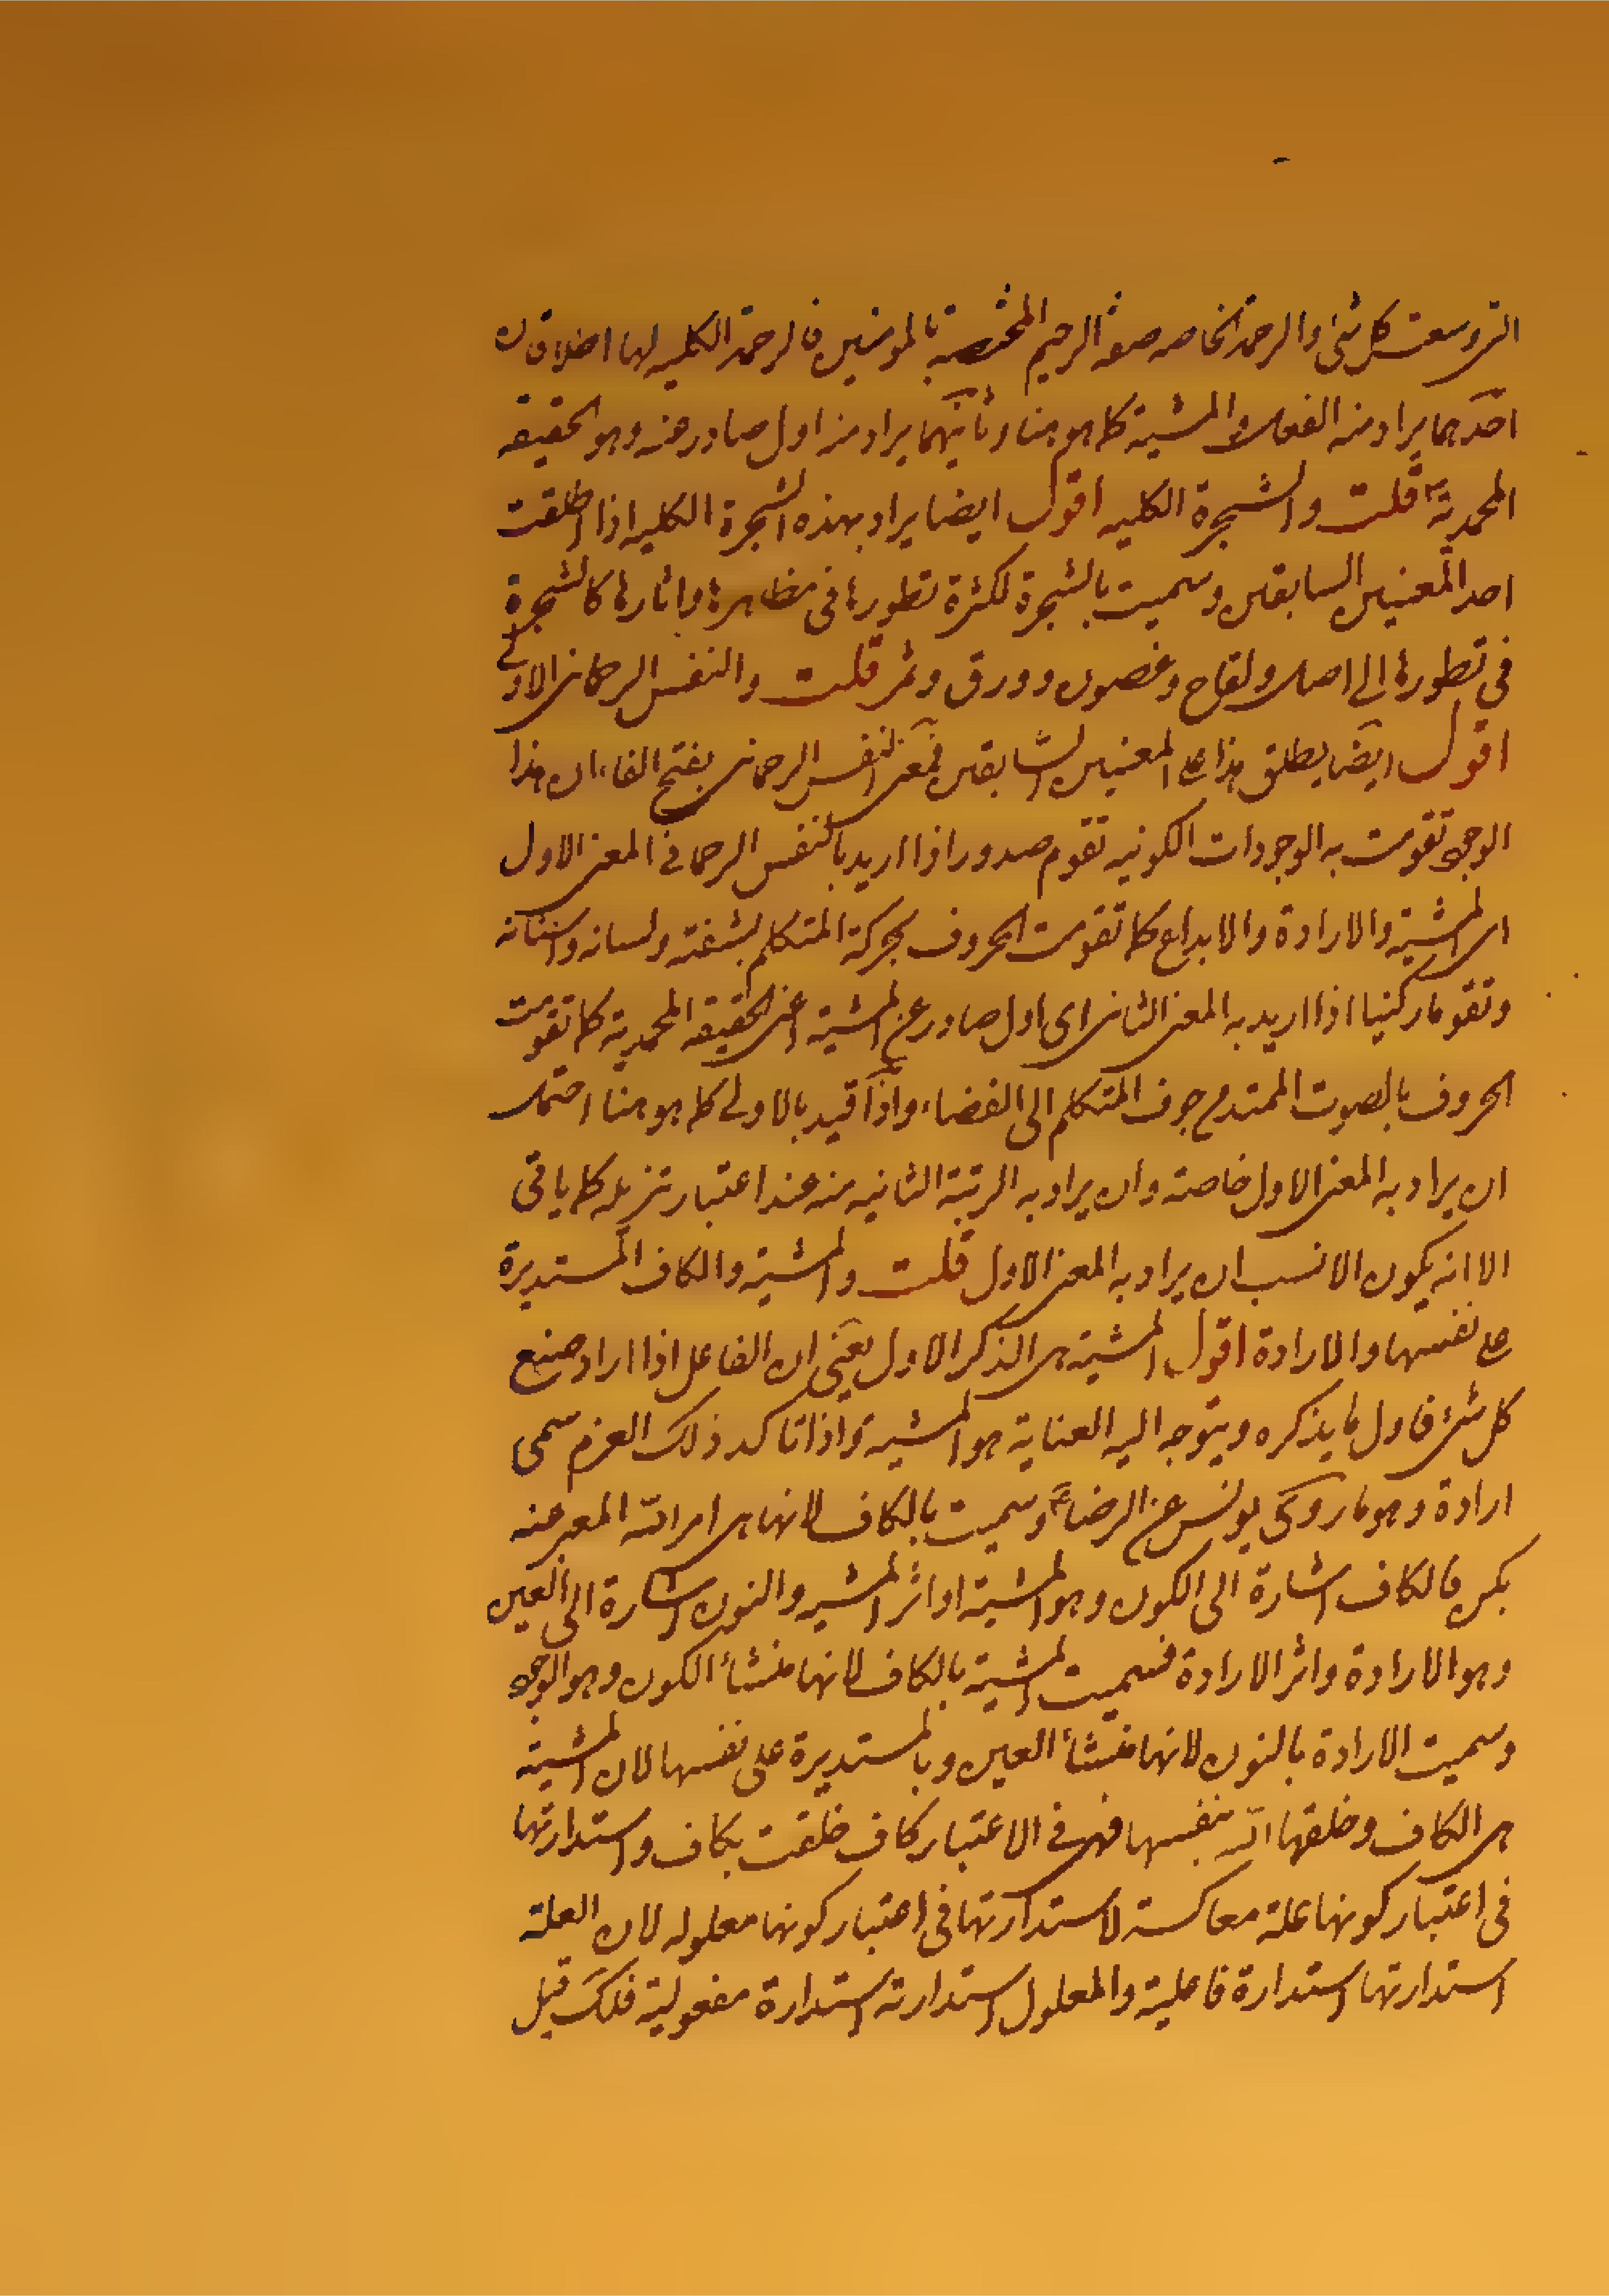 التى وسعت كل شئ والرحمة الخاصه صفة الرحيم المختصة بالمومنين فالرحمة الكليه لها اطلاقان
احدهما يراد منه الفعل والمشية كما هو هنا وثانيهما يراد منه اول صادر عنه وهو الحقيقه
المحمدية ص قلت والشجرة الكليه اقول ايضا يراد بهذه الشجرة الكليه اذا اطلقت
احد المعنيين السابقين وسميت بالشجرة لكثرة تطورها فى مظاهرها واثارها كالشجرة
فى تطورها الى اصل ولقاح وغصون وورق وثمر قلت والنفس الرحمانى الاولى
اقول ايضا يطلق هذا على المعنيين السابقين فمعنى النفس الرحمانى بفتح الفاء ان هذا
الوجود تقومت به الوجودات الكونيه تقوم صدور اذا اريد بالنفس الرحمانى المعنى الاول
اى المشية والارادة والابداع كما تقومت الحروف بحركة المتكلم بشفته ولسانه واسنانه
وتقوما ركنيا اذا اريد به المعنى الثانى اى اول صادر عن المشية اعنى الحقيقه المحمدية كما تقومت
الحروف بالصوت الممتد من جوف المتكلم الى الفضاء واذا قيد بالاولى كما هو هنا احتمل
ان يراد به المعنى الاول خاصة وان يراد به الرتبة الثانيه منه عند اعتبار تنزيله كما ياتى
الا انه يكون الانسب ان يراد به المعنى الاول قلت والمشية والكاف المستديرة
على نفسها والارادة اقول المشية هى الذكر الاول يعنى ان الفاعل اذا اراد صنيع
كل شئ فاول ما يذكره ويتوجه اليه العناية هو المشية واذا تاكد ذلك العزم سمى
ارادة وهو ما روى يونس عن الرضا ع وسميت بالكاف لانها هى امر الله المعبر عنه
بكن فالكاف اشارة الى الكون وهو المشية او اثر المشيه والنون اشارة الى العين
وهو الارادة واثر الارادة فسميت المشية بالكاف لانها منشأ الكون وهو الوجود
وسميت الارادة بالنون لانها منشأ العين وبالمستديرة على نفسها لان المشية
هى الكاف وخلقها الله بنفسها فهى فى الاعتبار كاف خلقت بكاف واستدارتها
فى اعتبار كونها علة معاكسة لاستدارتها فى اعتبار كونها معلوله لان العلة
استدارتها استدارة فاعلية والمعلول استدارته استدارة مفعولية فلك قيل